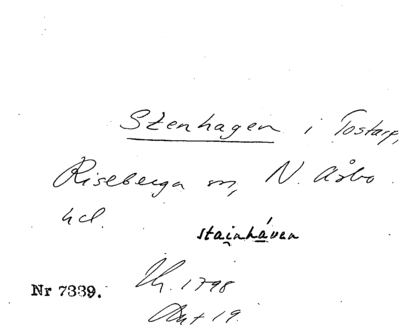 Stenhagen i Tostarp,
Riseberga sn, N. Åsbo
hd.
stainháven
Nr 7339.
Uh. 1798
Akt 19.